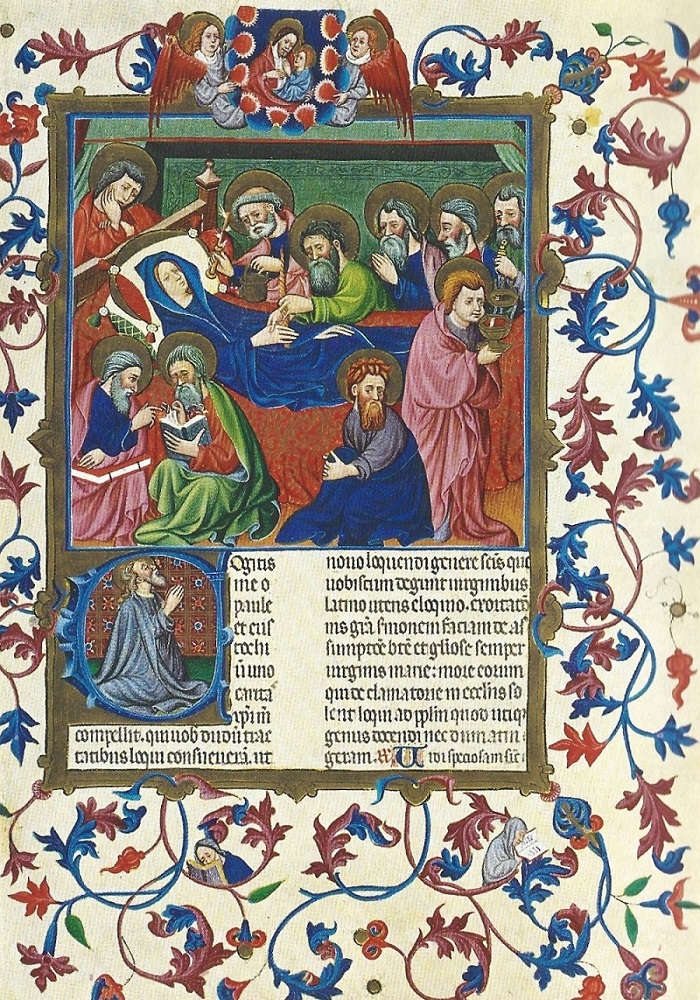 COgitis
me o
paule
et eus
tochi
ũ uno
carita
xp̃i
compellit. qui uob dudũ trac
tatibus loqui consueuerã. ut
nouo loquendi genere scĩs que
uobiscum degunt uirginibus
latino utens eloquio. exortato
grã smonem faciam de as
sumptõe btẽ et gliose semper
uirginis marie: more eorum
qui declamatorie in ecclijs so
lent loqui ad pplm quod utiqȝ
genus docendi nec dum atti
geram. Vidi speciosam sic